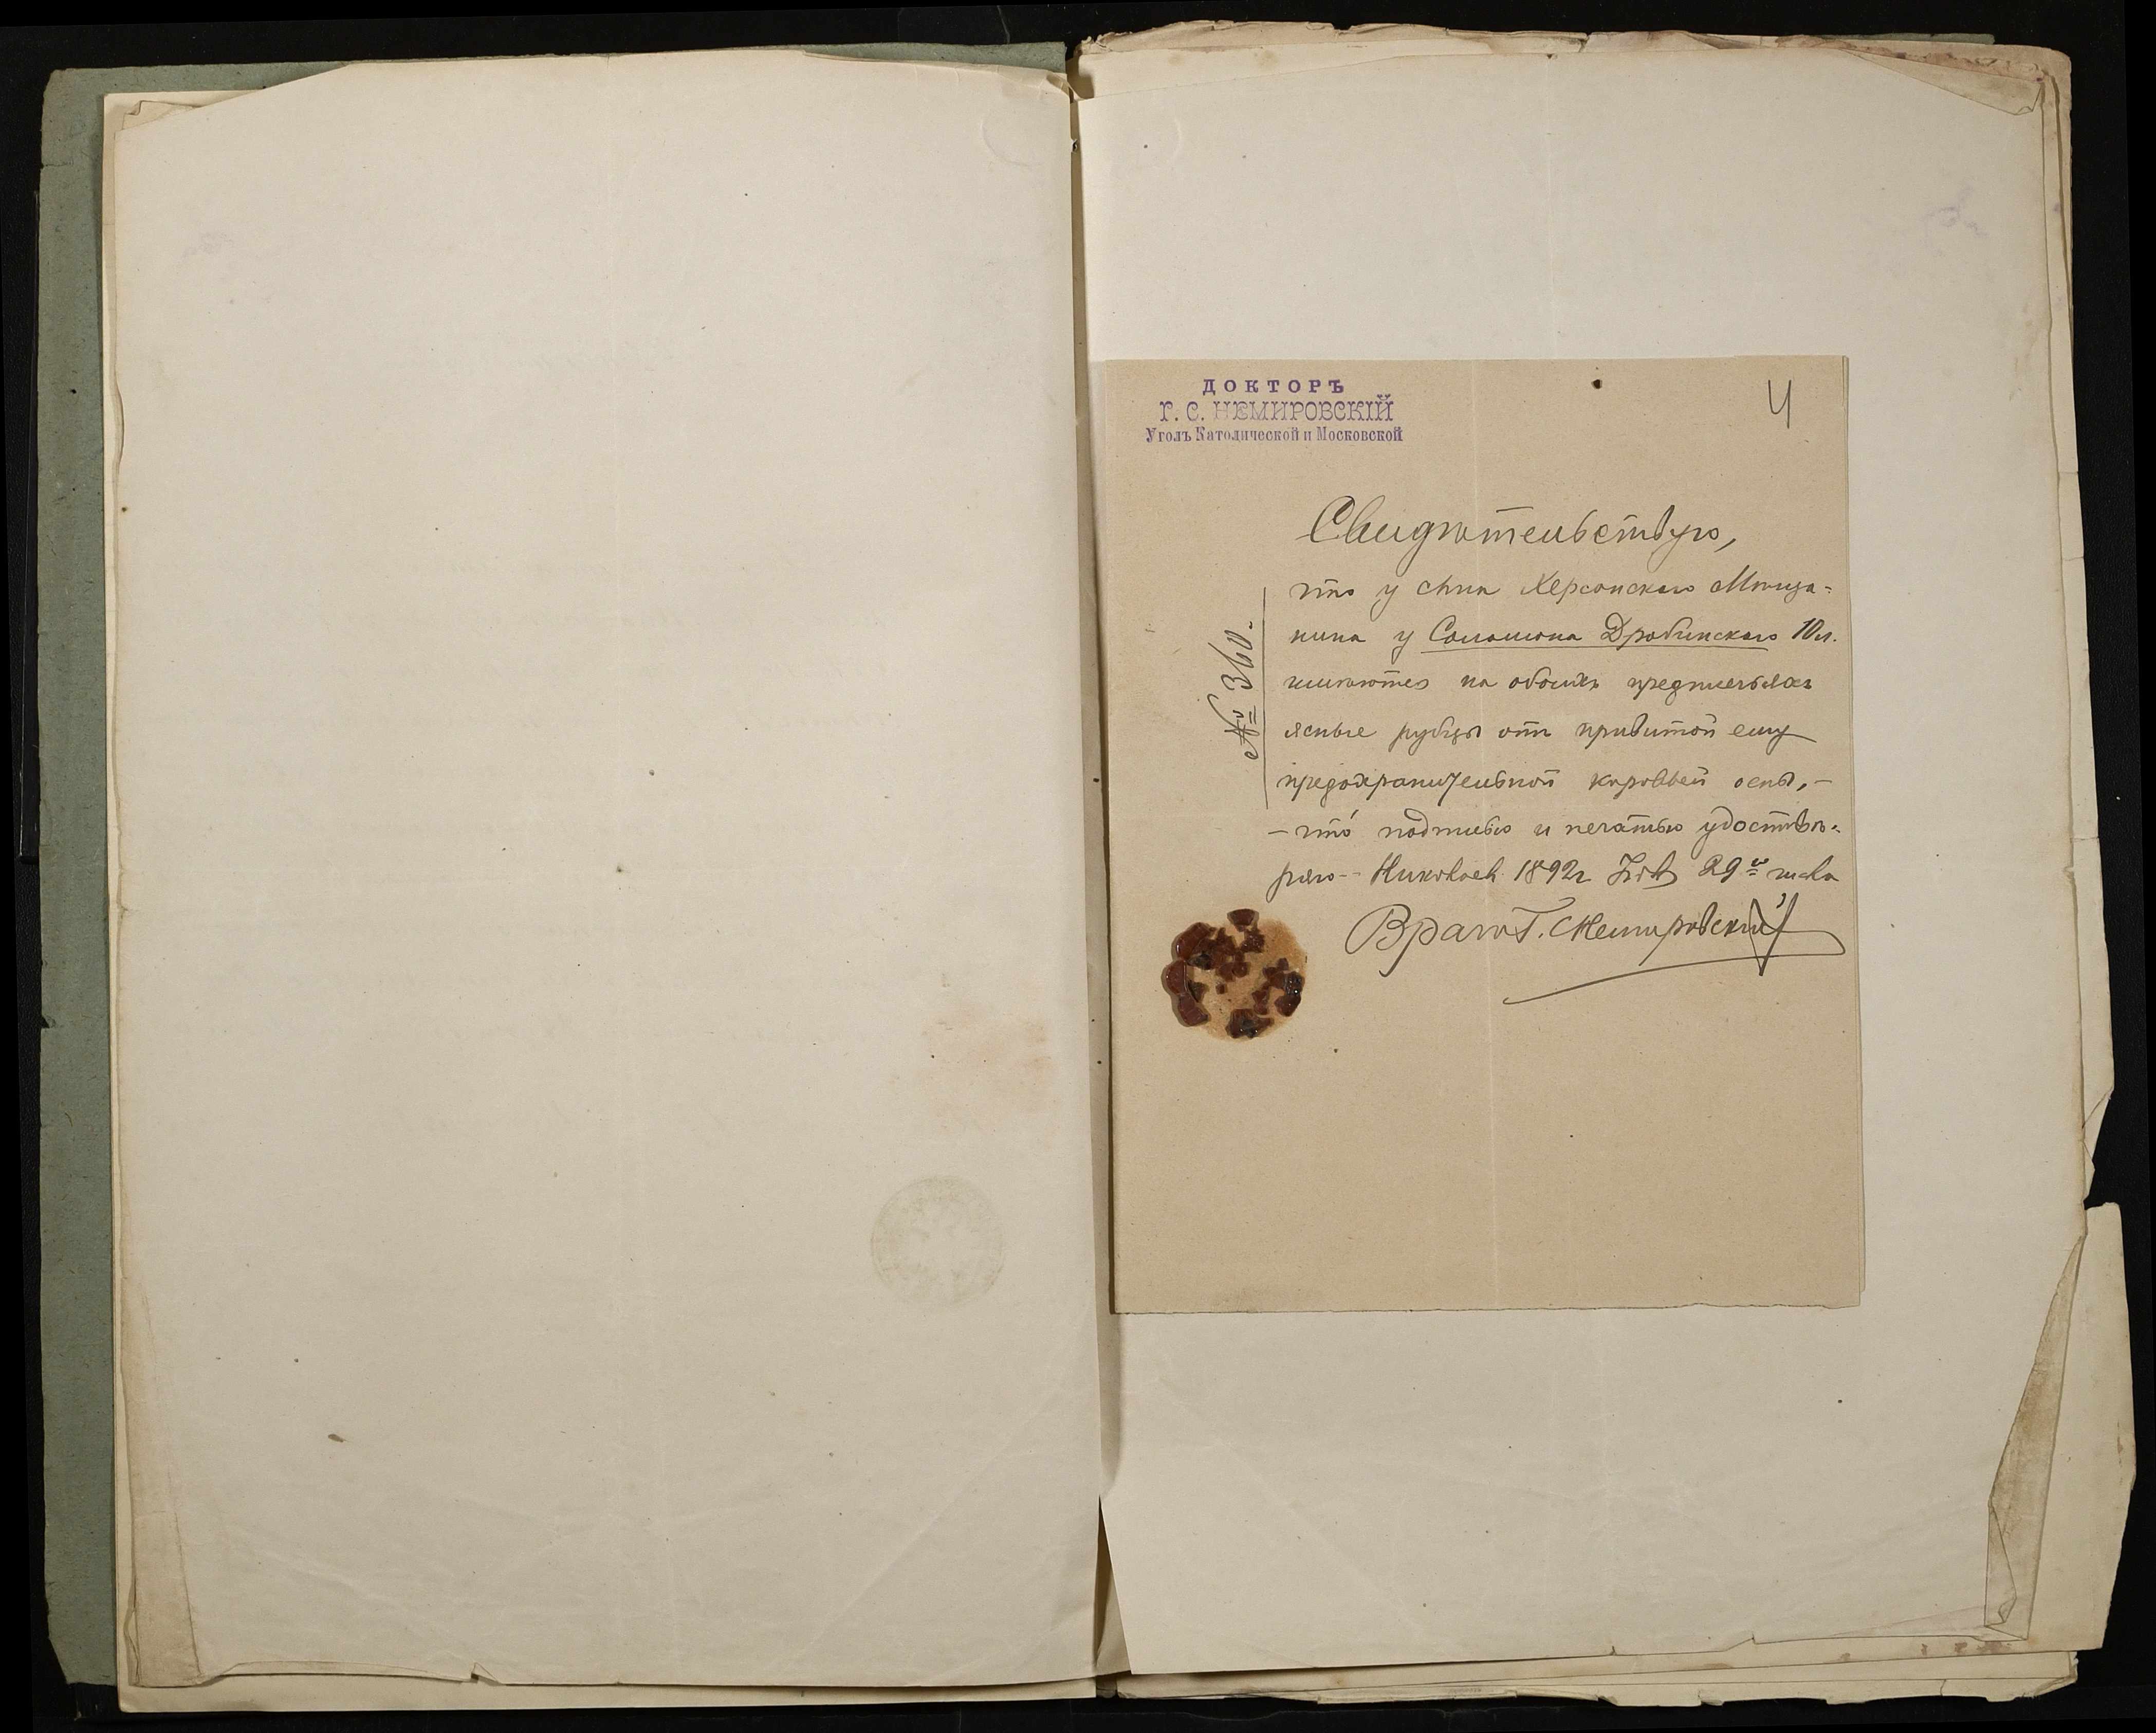 ДОКТОРЪ
Г. С. НЕМИРОВСКІЙ
Уголъ Католической и Московской
4
Свидѣтельствую,
что у сына Херсонскаго Мѣща=
нина у Соломона Дробинскаго 10 л.
имѣются на обоихъ предплечьяхъ
ясные рубцы отъ привитой ему
предохранительной коровьей оспы, –
– что́ подписью и печатью удостовѣ=
ряю – Николаевъ 1892 г. 29го
Врачъ Г. Немировскій
№ 360.